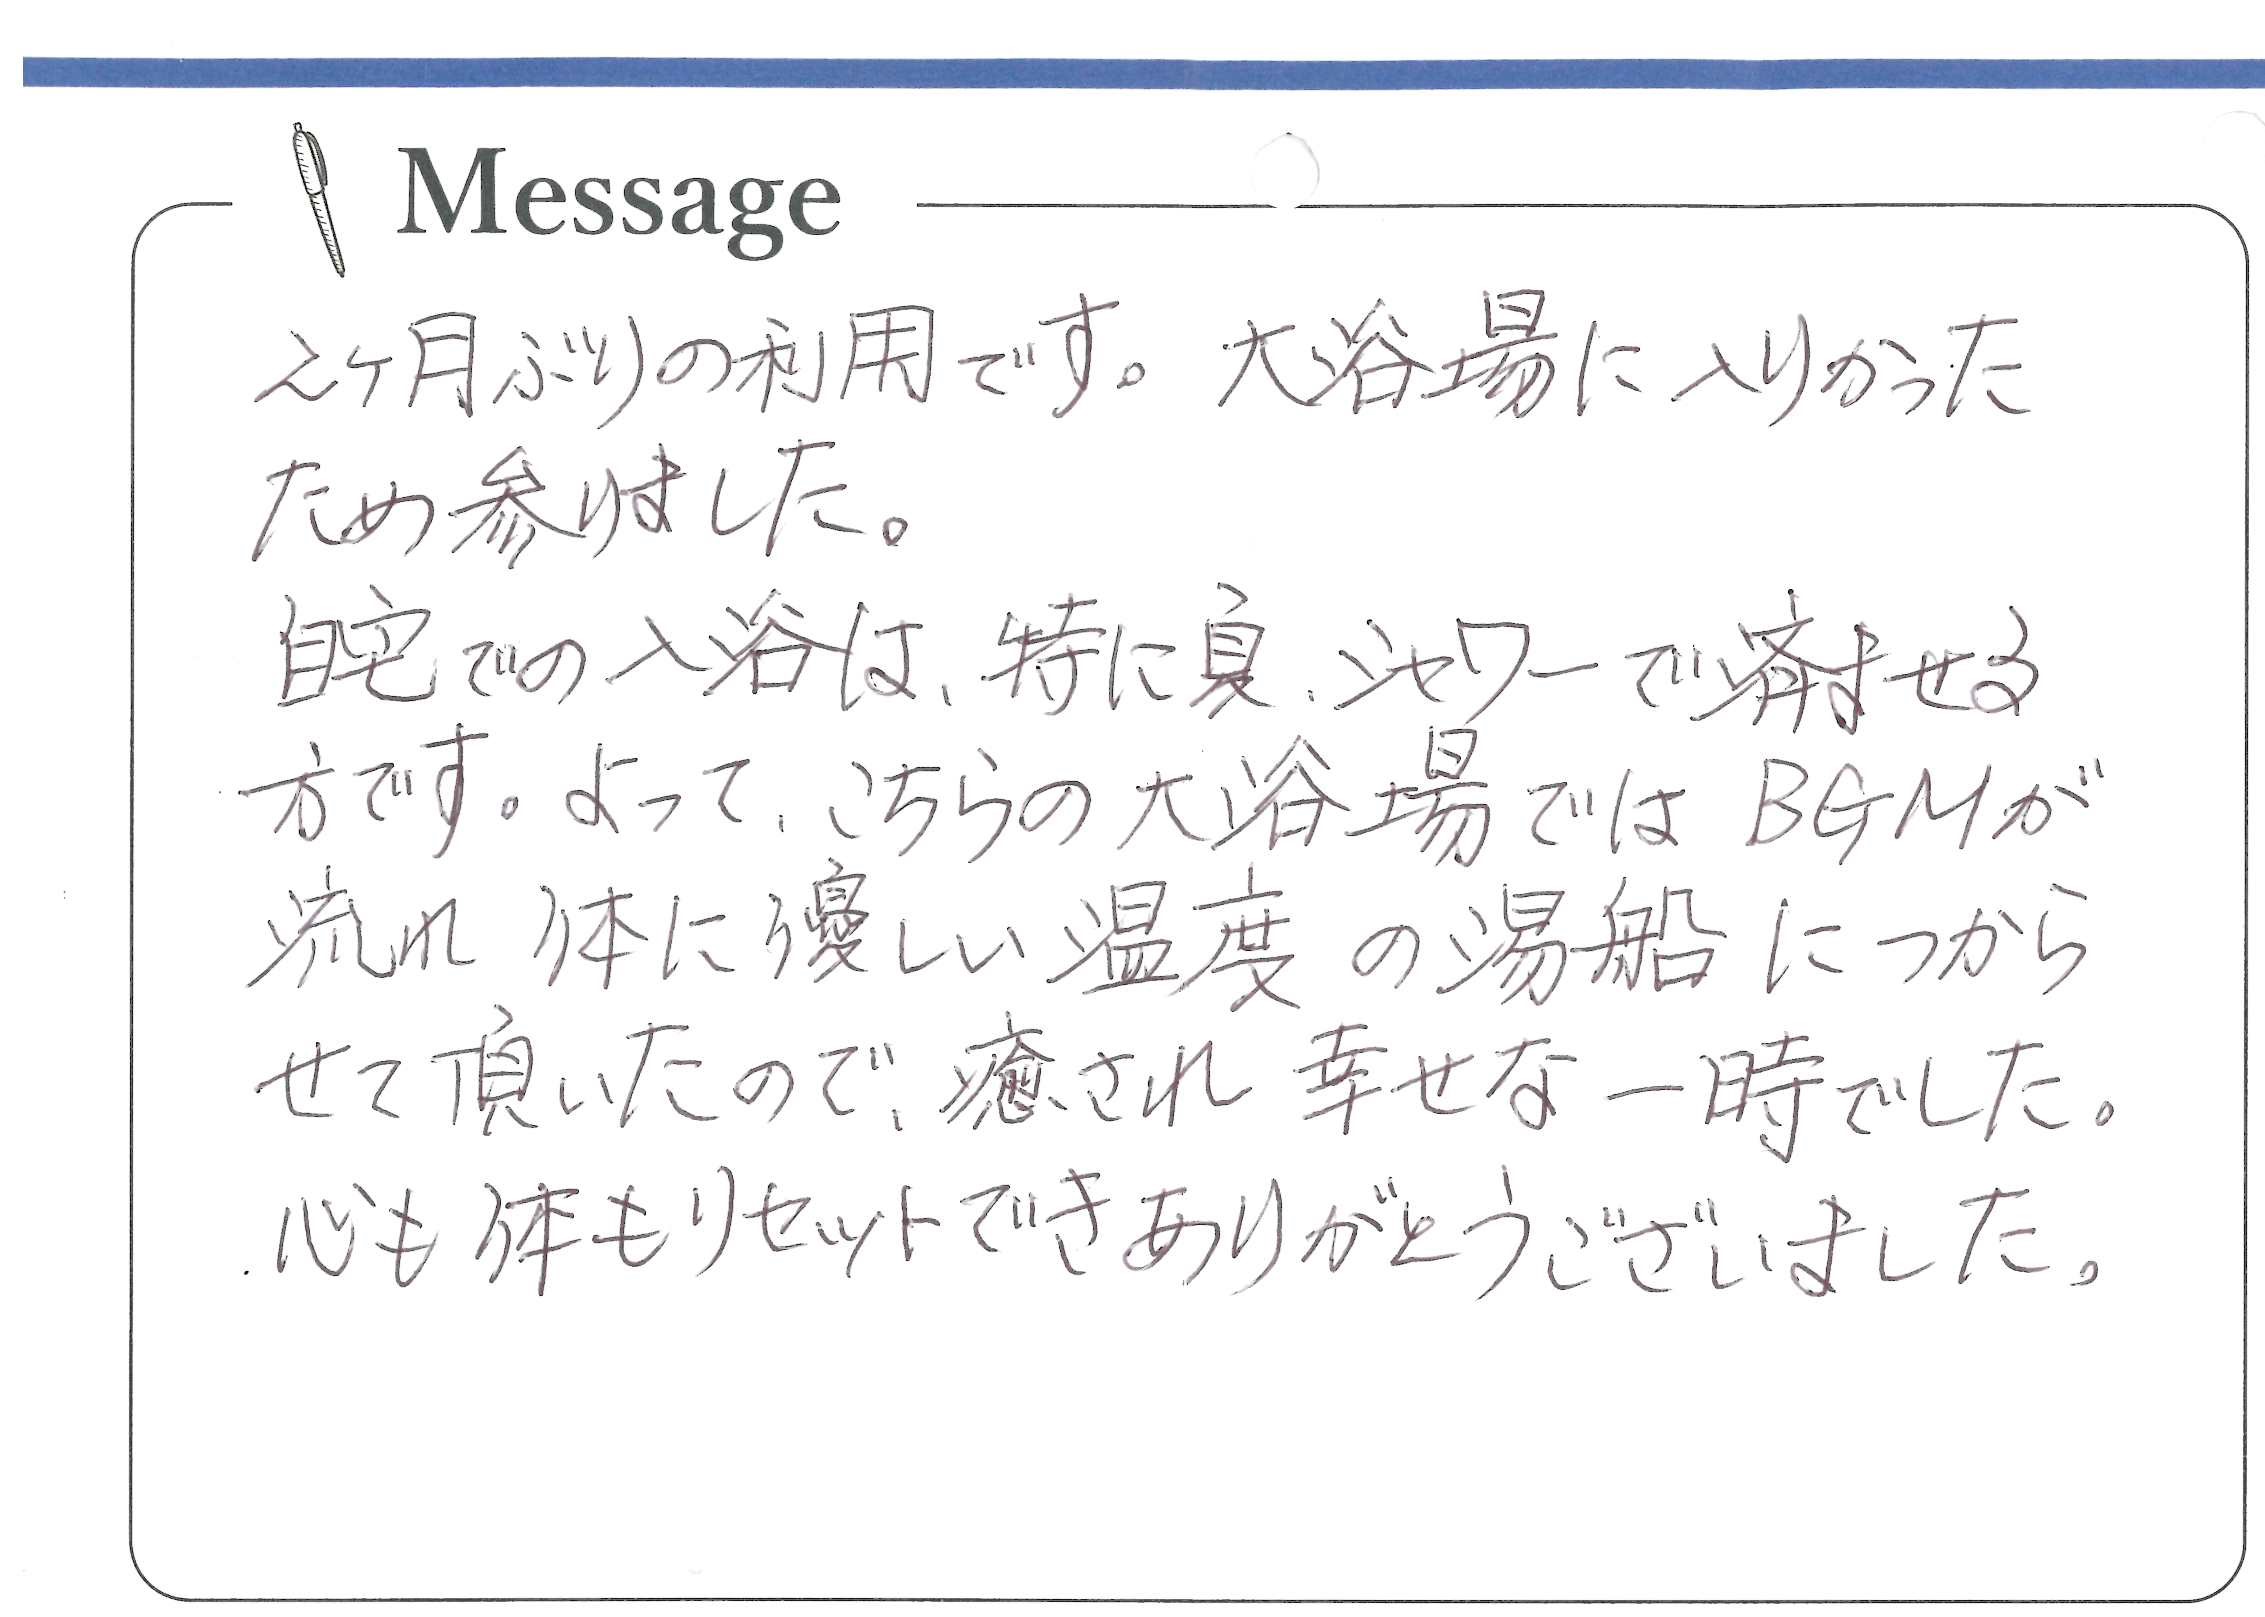 Message
2ヶ月ぶりの利用です。大浴場に入りかった
ため参りました。
自宅での入浴は、特に夏、シャワーで済ませる
方です。よって、こちらの大浴場ではBGMが
流れ 体に優しい温度の湯船につから
せて頂いたので、癒され 幸せな一時でした。
心も体もリセットできありがとうございました。